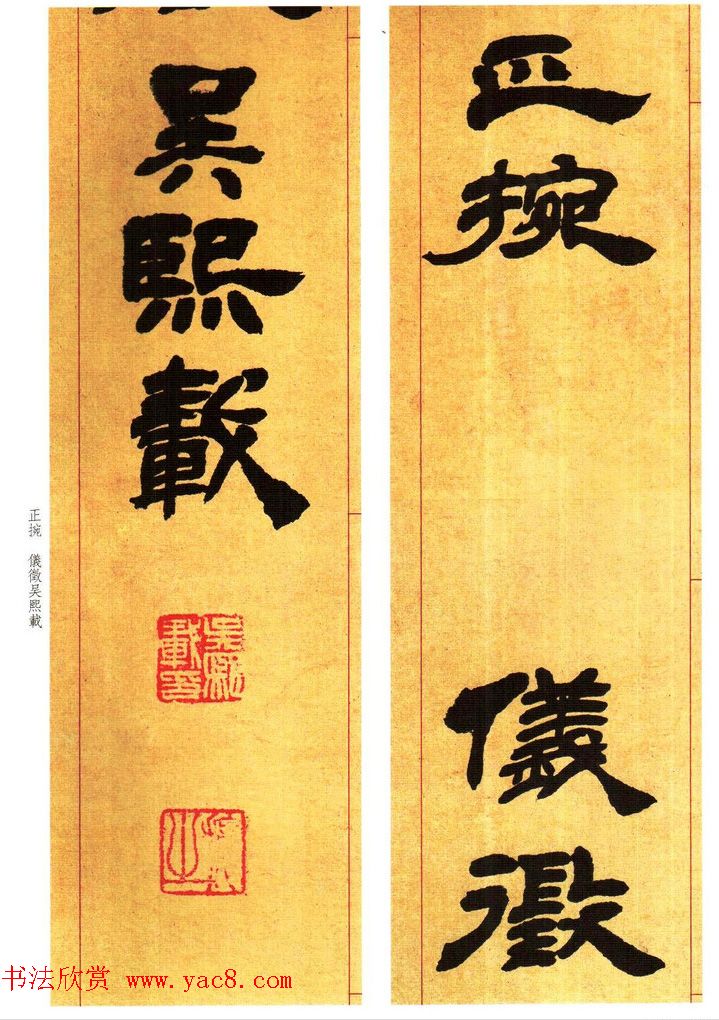 正捥
儀徵
吳熙載
吳熙載印
正捥　儀徵吴熙載
书法欣赏 www.yac8.com